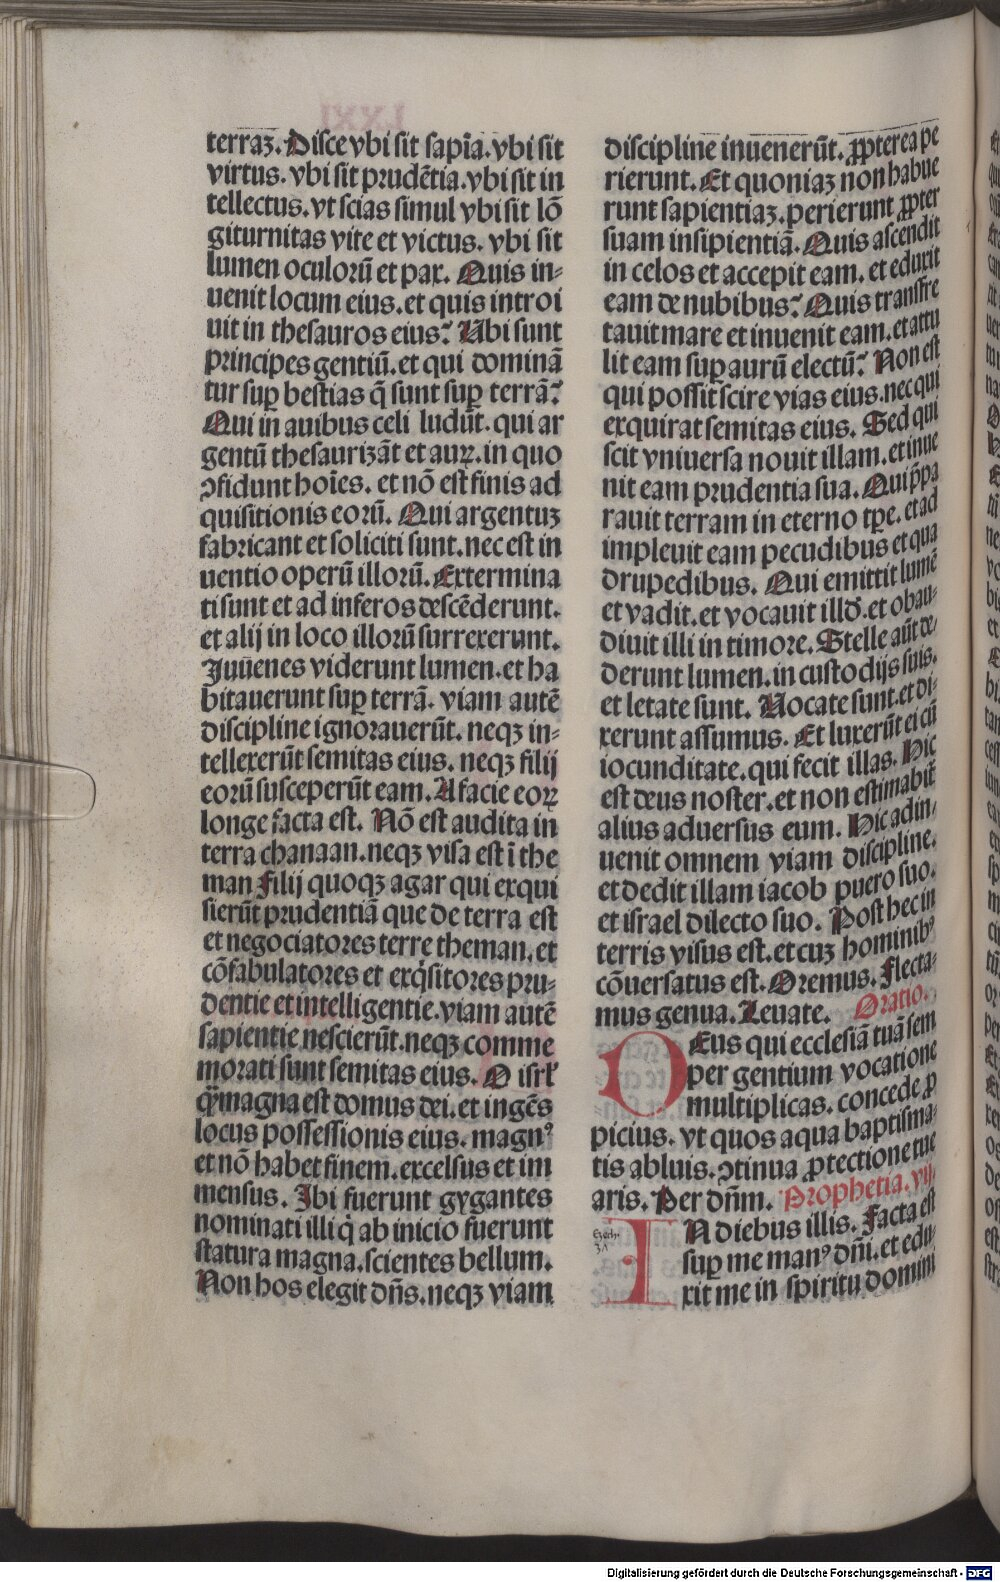 terraꝫ. Disce vbi sit sapiẽa. vbi sit
virtus. vbi sit prudẽtia. vbi sit in
tellectus. vt scias simul vbi sit lõ
giturnitas vite et victus. vbi sit
lumen oculorũ et pax. Quis in-
uenit locum eius. et quis introi
uit in thesauros eius? Ubi sunt
principes gentiũ. et qui dominã
tur suꝑ bestias q̃ sunt suꝑ terrã?
Qui in auibus celi ludũt. qui ar
gentũ thesaurizãt et auꝝ. in quo
ꝯfidunt hoĩes. et nõ est finis ad
quisitionis eorũ. Qui argentuꝫ
fabricant et soliciti sunt. nec est in
uentio operũ illorũ. Extermina
ti sunt et ad inferos descẽderunt.
et alij in loco illorũ surrexerunt.
Juuenes viderunt lumen. et ha
bitauerunt suꝑ terrã. viam autẽ
discipline ignorauerũt. neqꝫ in-
tellexerũt semitas eius. neqꝫ filij
eorũ susceperũt eam. A facie eoꝝ
longe facta est. Nõ est audita in
terra chanaan. neqꝫ visa est ĩ the
man Filij quoqꝫ agar qui exqui
sierũt prudentiã que de terra est
et negociatores terre theman. et
cõfabulatores et exq̇sitores pru-
dentie et intelligentie. viam autẽ
sapientie nescierũt. neqꝫ comme
morati sunt semitas eius. O isrł
q̃ꝫ magna est domus dei. et ingẽs
locus possessionis eius. magnꝰ
et nõ habet finem. excelsus et im
mensus. Ibi fuerunt gygantes
nominati illi q̇ ab inicio fuerunt
statura magna. scientes bellum.
Non hos elegit dñs. neqꝫ viam
discipline inuenerũt. ꝓpterea pe
rierunt. Et quoniaꝫ non habue
runt sapientiaꝫ. perierunt ꝓpter
suam insipientiã. Quis ascendit
in celos et accepit eam. et eduxit
eam de nubibus? Quis transfre
tauit mare et inuenit eam. et attu
lit eam suꝑ aurũ electũ? Non est
qui possit scire vias eius. nec qui
exquirat semitas eius. Sed qui
scit vniuersa nouit illam. et inue
nit eam prudentia sua. Qui p̃pa
rauit terram in eterno tꝑe. et ad
impleuit eam pecudibus et qua
drupedibus. Qui emittit lumẽ
et vadit. et vocauit illđ. et obau-
diuit illi in timore. Stelle aũt de-
derunt lumen. in custodijs suis.
et letate sunt. Uocate sunt. et di-
xerunt assumus. Et luxerũt ei cũ
iocunditate. qui fecit illas. Hic
est deus noster. et non estimabit̃
alius aduersus eum. Hic adin-
uenit omnem viam discipline.
et dedit illam iacob puero suo.
et israel dilecto suo. Post hec in
terris visus est. et cuꝫ hominibꝰ
cõuersatus est. Oremus. Flecta-
mus genua. Leuate. Oratio.
DEus qui ecclesiã tuã sem
per gentium vocatione
multiplicas. concede ꝓ
picius. vt quos aqua baptisma-
tis abluis. ꝯtinua ꝓtectione tue
aris. Per dñm. Prophetia. vij.
IN diebus illis. Facta est
suꝑ me manꝰ dñi. et edu-
xit me in spiritu domini